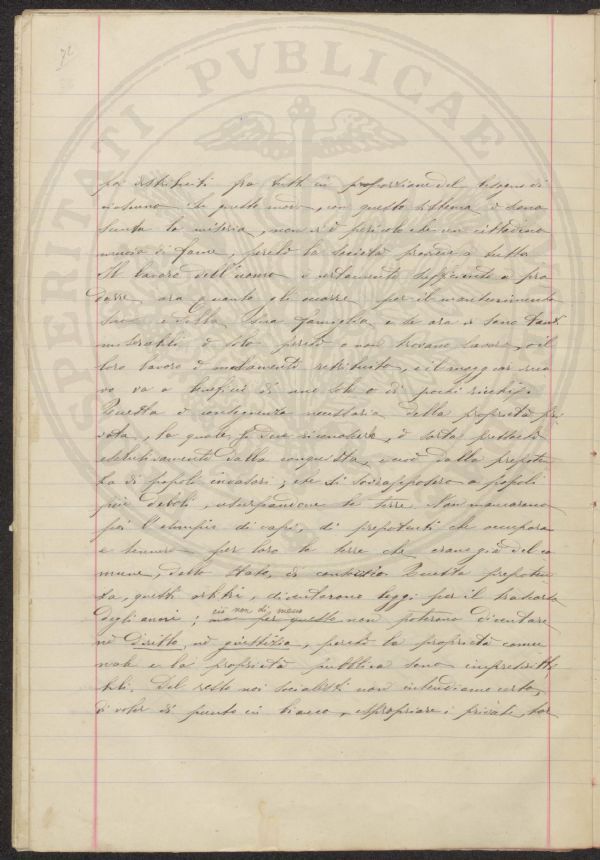 72
PROSPERITATI PVBLICAE
poi distribuiti fra tutti in proporzione del bisogno di
ciascuno. In questo modo, con questo sistema è scono
sciuta la miseria, non v'è pericolo che un cittadino
muoia di fame, perché la società provvede a tutto.
Il lavoro dell'uomo è certamente sufficiente a pro
durre, ora quanto gli occorre per il mantenimento
suo e della sua famiglia e se ora vi sono tanti
miserabili è solo perché o non trovano lavoro, o il
loro lavoro è malamente retribuito, e il maggior rica
vo va a beneficio di uno solo o di pochi ricchi.
Questa è conseguenza necessaria della proprietà pri
vata, la quale, si deve riconoscere, è sorta
esclusivamente dalla conquista, cioè dalla prepoten
za di popoli invasori, che si sovrapposero a popoli
più deboli, usurpandone le terre. Non mancarono
poi gli esempi di capi, di prepotenti che occuparo
no e tennero per loro le terre che erano già del co
mune, dello Stato, Questa prepoten
za, questi arbitri, diventarono leggi per il trascorso
degli anni; ciò non di meno ma per questo non poterono diventare
né diritto, né giustizia, perché la proprietà comu
nale e la proprietà pubblica sono imprescritti
bili. Del resto noi socialisti non intendiamo certo,
di voler di punto in bianco, espropriare i privati, tor